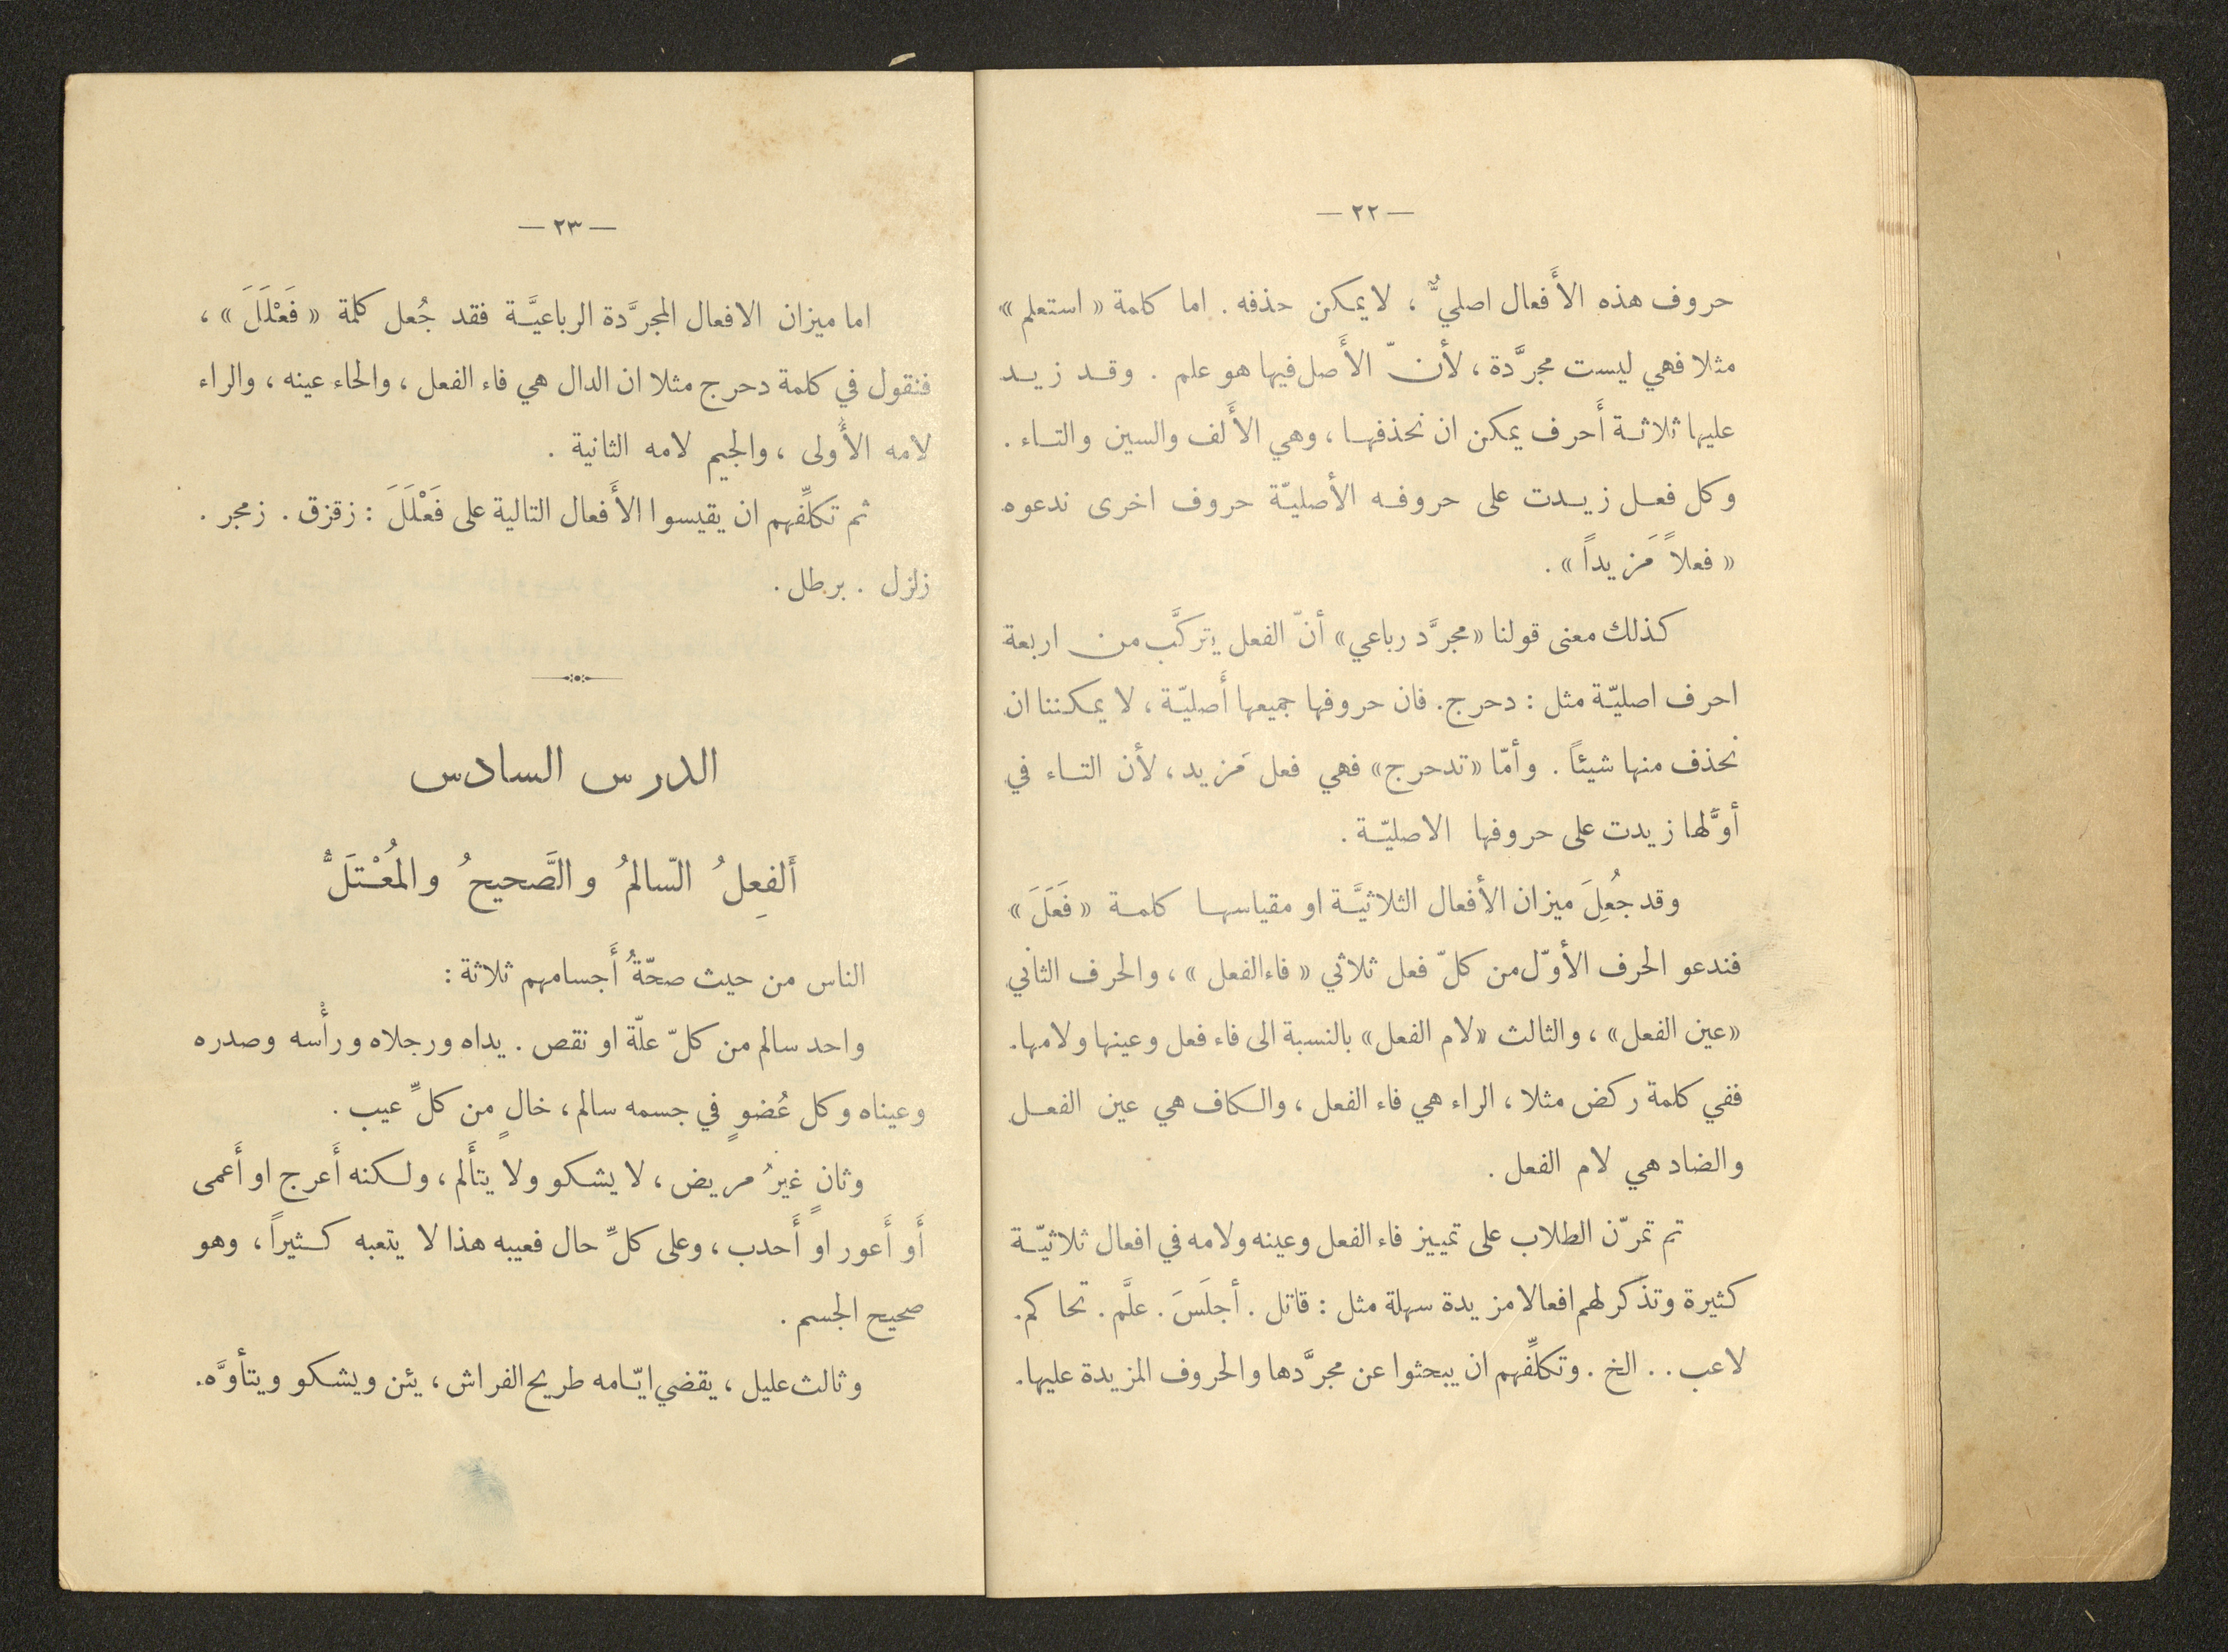 — ٢٢ —
حروف هذه الأَفعال اصليٌّ ، لا يمكن حذفه . اما كلمة « استعلم »
مثلا فهي ليست مجرَّدة ، لأنّ الأَصل فيها هو علم . وقد زيد
عليها ثلاثة أَحرف يمكن ان نحذفها ، وهي الأَلف والسين والتاء .
وكل فعل زيدت على حروفه الأصليّة حروف اخرى ندعوه
« فعلاً مَزيداً » .
كذلك معنى قولنا « مجرَّد رباعي » أنّ الفعل يتركَّب من اربعة
احرف اصليّة مثل : دحرج . فان حروفها جميعها أَصليّة ، لا يمكننا ان
نحذف منها شيئاً . وأمّا « تدحرج » فهي فعل مَزيد ، لأن التاء في
أوَّلها زيدت على حروفها الاصليّة .
وقد جُعِلَ ميزان الأفعال الثلاثيَّة او مقياسها كلمة « فَعَلَ »
فندعو الحرف الأوّل من كلّ فعل ثلاثي « فاء الفعل » ، والحرف الثاني
« عين الفعل » ، والثالث « لام الفعل » بالنسبة الى فاء فعل وعينها ولامها .
ففي كلمة ركض مثلا ، الراء هي فاء الفعل ، والكاف هي عين الفعل
والضاد هي لام الفعل .
تم تمرّن الطلاب على تمييز فاء الفعل وعينه ولامه في افعال ثلاثيّة
كثيرة وتذكر لهم افعالا مزيدة سهلة مثل : قاتل . أجلَسَ . علَّم . تحاكم .
لاعب . . الخ . وتكلِّفهم ان يبحثوا عن مجرَّدها والحروف المزيدة عليها .
— ٢٣ —
اما ميزان الافعال المجرَّدة الرباعيَّة فقد جُعل كلمة « فَعْلَلَ » ،
فنقول في كلمة دحرج مثلا ان الدال هي فاء الفعل ، والحاء عينه ، والراء
لامه الأُولى ، والجيم لامه الثانية .
ثم تكلِّفهم ان يقيسوا الأَفعال التالية على فَعْلَلَ : زقزق . زمجر .
زلزل . برطل .
الدرس السادس
أَلفِعلُ السّالمُ والصَّحيحُ والمُعْتَلُّ
الناس من حيث صحّةُ أَجسامهم ثلاثة :
واحد سالم من كلّ علّة او نقص . يداه ورجلاه ورأْسه وصدره
وعيناه وكل عُضوٍ في جسمه سالم ، خالٍ من كلِّ عيب .
وثانٍ غيرُ مريض ، لا يشكو ولا يتأَلم ، ولكنه أَعرج او أَعمى
أَو أَعور او أَحدب ، وعلى كلِّ حال فعيبه هذا لا يتعبه كثيراً ، وهو
صحيح الجسم .
وثالث عليل ، يقضي ايّامه طريح الفراش ، يئن ويشكو ويتأوَّه .